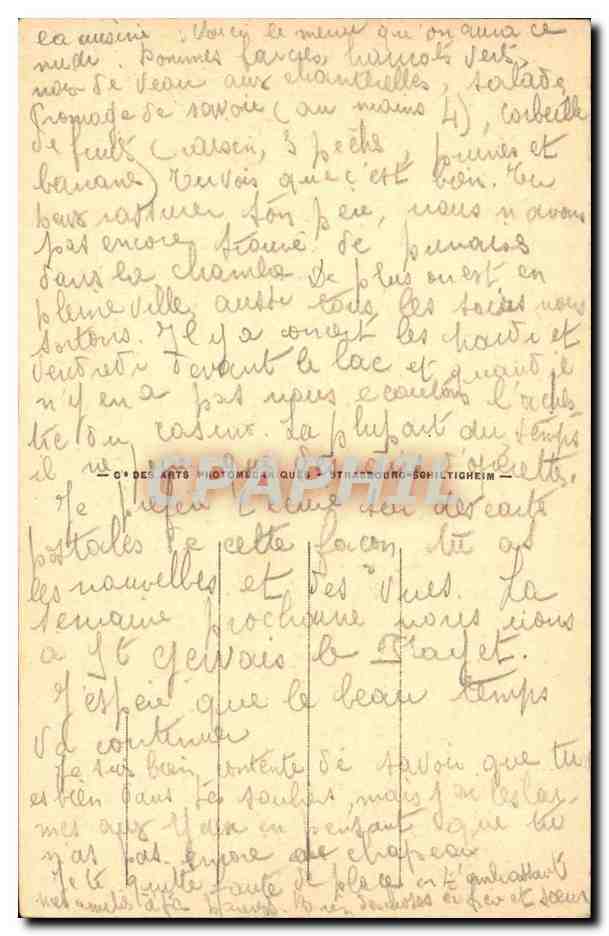 la cuisine. Voici le menu qu'on aura ce
midi. Pommes farcies, haricots verts,
noix de veau aux chanterelles, salade,
fromage de savoie (au moins 4), corbeille
de fruits (raisin, 3 pêches, prunes et
banane) Tu vois que ç est bien. Tu
peux rassurer ton père, nous n'avons
pas encore trouvé de punaises
dans la chambre De plus on est en
pleine ville, aussi tous les soirs nous
sortons. Il y a concert les mardi et
vendredi devant le lac et quand il
n'y en a pas nous écoutons l'orches
tre du casino. La plupart du temps
il ne
— Cie DES ARTS PHOTOMÉCANIQUES - STRASBOURG-SCHILTIGHEIM —
CPAPHIL
Je préfère t'écrire sur des cartes
postales de cette façon tu as
les nouvelles et des vues. La
semaine prochaine nous irons
a St Gervais le Fayet.
J'espère que le beau temps
va continuer
Je suis bien contente de savoir que tu
es bien dans tes souliers, mais j'ai les lar-
mes aux yeux en pensant que tu
n'as pas encore de chapeau
Je te quitte faute de place en t'embrassant
mes amitiés à ta et sœur